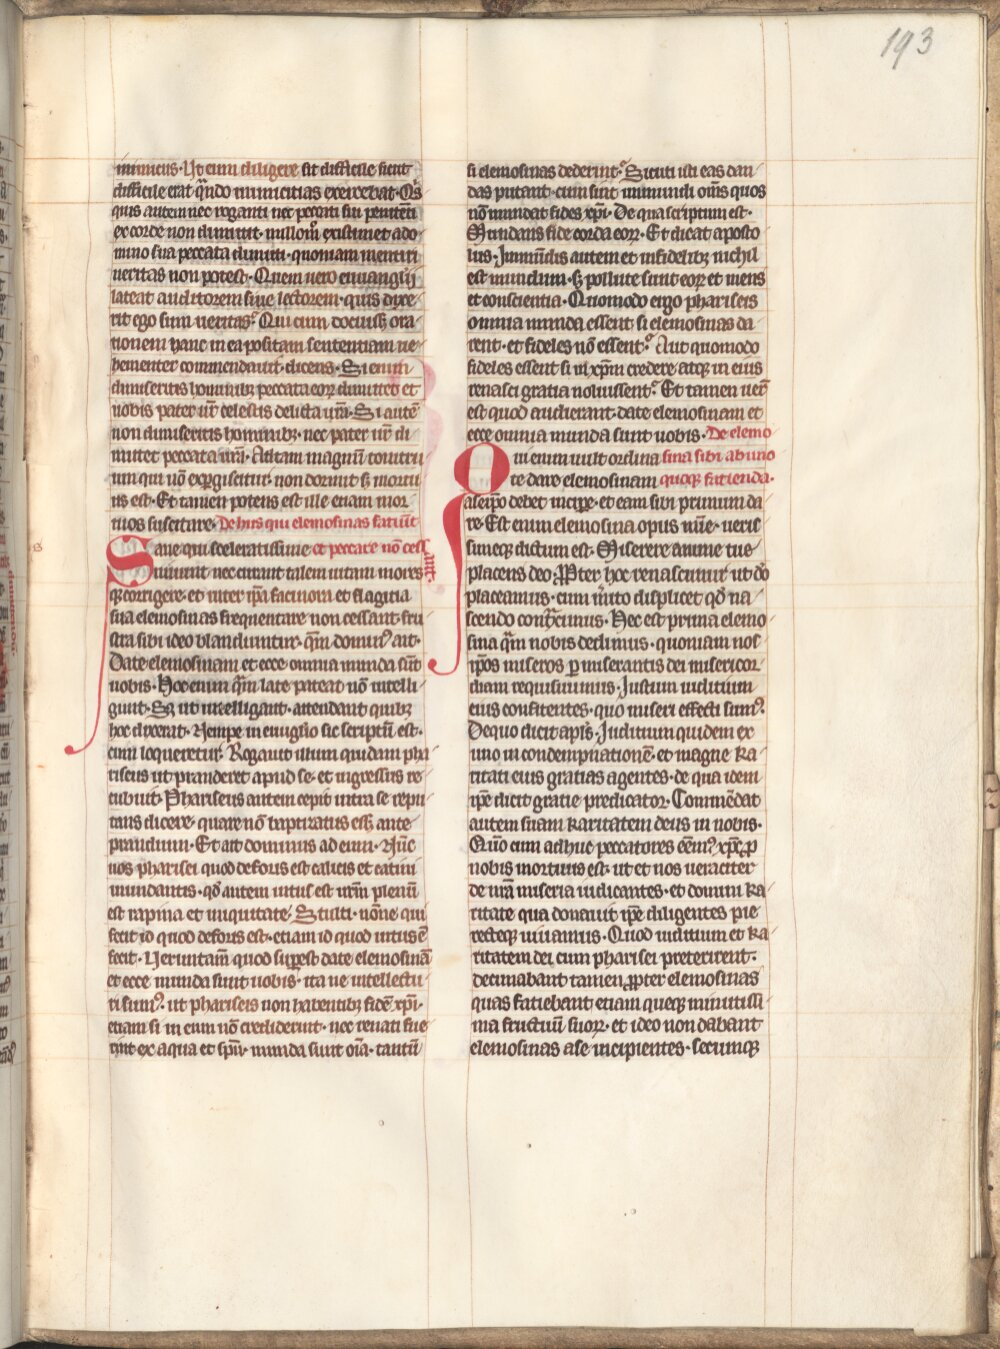 193
inimicus· Ut eum diligere sit difficile sicut
difficile erat qn̄do inimicitias exercebat· Qͥs
quis autem nec roganti nec peccati sui penitēti
ex corde non dimittit· nullom̊ existimet a do
mino sua peccata dimitti· quoniam mentiri
ueritas non potest· Quem uero euuanglij
lateat auditorem siue lectorem· quis dixe
rit ego sum ueritas? Qui cum docuissꝫ ora
tionem hanc in ea positam sententiam ue
hementer commendauit dicens· Si enim
dimiseritis hominibꝫ peccata eoꝝ dimittet et
uobis pater ur̄ celestis delicta ur̄a· Si autē
non dimiseritis hominibꝫ· nec pater ur̄ di
mittet peccata ur̄a· Ad tam magnū tonitru
um qui nō exꝑgiscitur· non dormit sꝫ mortu
us est· Et tamen potens est ille etiam mor
tuos suscitare· De hiis qui elemosinas faciūt
Sane qui sceleratissime et peccare nō cess
uiuunt nec curant talem uitam mores ant·
qꝫ corrigere· et inter ip̄a facinora et flagitia
sua elemosinas frequentare non cessant· fru
stra sibi ideo blandiuntur· qm̄ dominꝰ ait·
Date elemosinam et ecce omnia munda sūt
uobis· Hoc enim qm̄ late pateat nō intelli
gunt· Sꝫ ut intelligant· attendant quibꝫ
hoc dixerat· Nempe in euuglio sic scriptū est·
cum loqueretur· Rogauit illum quidam pha
riseus ut pranderet apud se· et ingressus re
cubuit· Phariseus autem cepit intra se repu
tans dicere· quare nō baptizatus essꝫ ante
prandium· Et ait dominus ad eum· Nūc
uos pharisei quod deforis est calicis et catini
mundantis· qd̄ autem intus est ur̄m plenū
est rapina et iniquitate· Stulti· nōne qui
fecit id quod deforis est· etiam id quod intus ē
fecit· Ueruntam̄ quod suꝑest date elemosinā
et ecce munda sunt uobis· ita ne intellectu
ri sumꝰ· ut phariseis non habentibꝫ fidē xp̄i·
etiam si in eum nō crediderint· nec renati fue
rint ex aqua et sp̄u· munda sunt oīa· tantū
si elemosinas dederint? Sicuti isti eas dan
das putant· cum sint inmundi om̄s quos
nō mundat fides xp̄i· De qua scriptum est·
Mundans fide corda eoꝝ· Et dicat aposto
lus· Inmundis autem et infidelibꝫ nichil
est mundum· sꝫ pollute sunt eoꝝ et mens
et conscientia· Quomodo ergo phariseis
omnia munda essent si elemosinas da
rent· et fideles nō essent? Aut quomodo
fideles essent si in xp̄m credere atqꝫ in eius
renasci gratia noluissent? Et tamen uer̄
est quod audierant· date elemosinam et
ecce omnia munda sunt uobis· De elemo
Qui enim uult ordina sina sibi ab uno
te dare elemosinam quoqꝫ facienda·
a seip̄o debet incipe̅· et eam sibi primum da
re· Est enim elemosina opus mīe· ueris
simeqꝫ dictum est· Miserere anime tue
placens deo· Ꝓpter hoc renascimur ut dō
placeamus· cum mīto displicet qd̄ na
scendo contraximus· Hec est prima elemo
sina qm̄ nobis dedimus· quoniam nos
ip̄os miseros ꝑ miserantis dei misericor
diam requisiuimus· Iustum iuditium
eius confitentes· quo miseri effecti sumꝰ·
De quo dicit apl̄s· Iuditium quidem ex
uno in condempnationē· et magne ka
ritati eius gratias agentes· de qua idem
ip̄e dicit gratie predicator· Commēdat
autem suam karitatem deus in nobis·
Qm̄o cum adhuc peccatores eēmꝰ xp̄c ꝓ
nobis mortuus est· ut et nos ueraciter
de nr̄a miseria iudicantes· et domini ka
ritate qua donauit ip̄e diligentes pie
recteqꝫ uiuamus· Quod iuditium et ka
ritatem dei cum pharisei preterirent·
decimabant tamen ꝓpter elemosinas
quas faciebant etiam queqꝫ minutissi
ma fructuū suoꝝ· et ideo non dabant
elemosinas a se incipientes· secumqꝫ